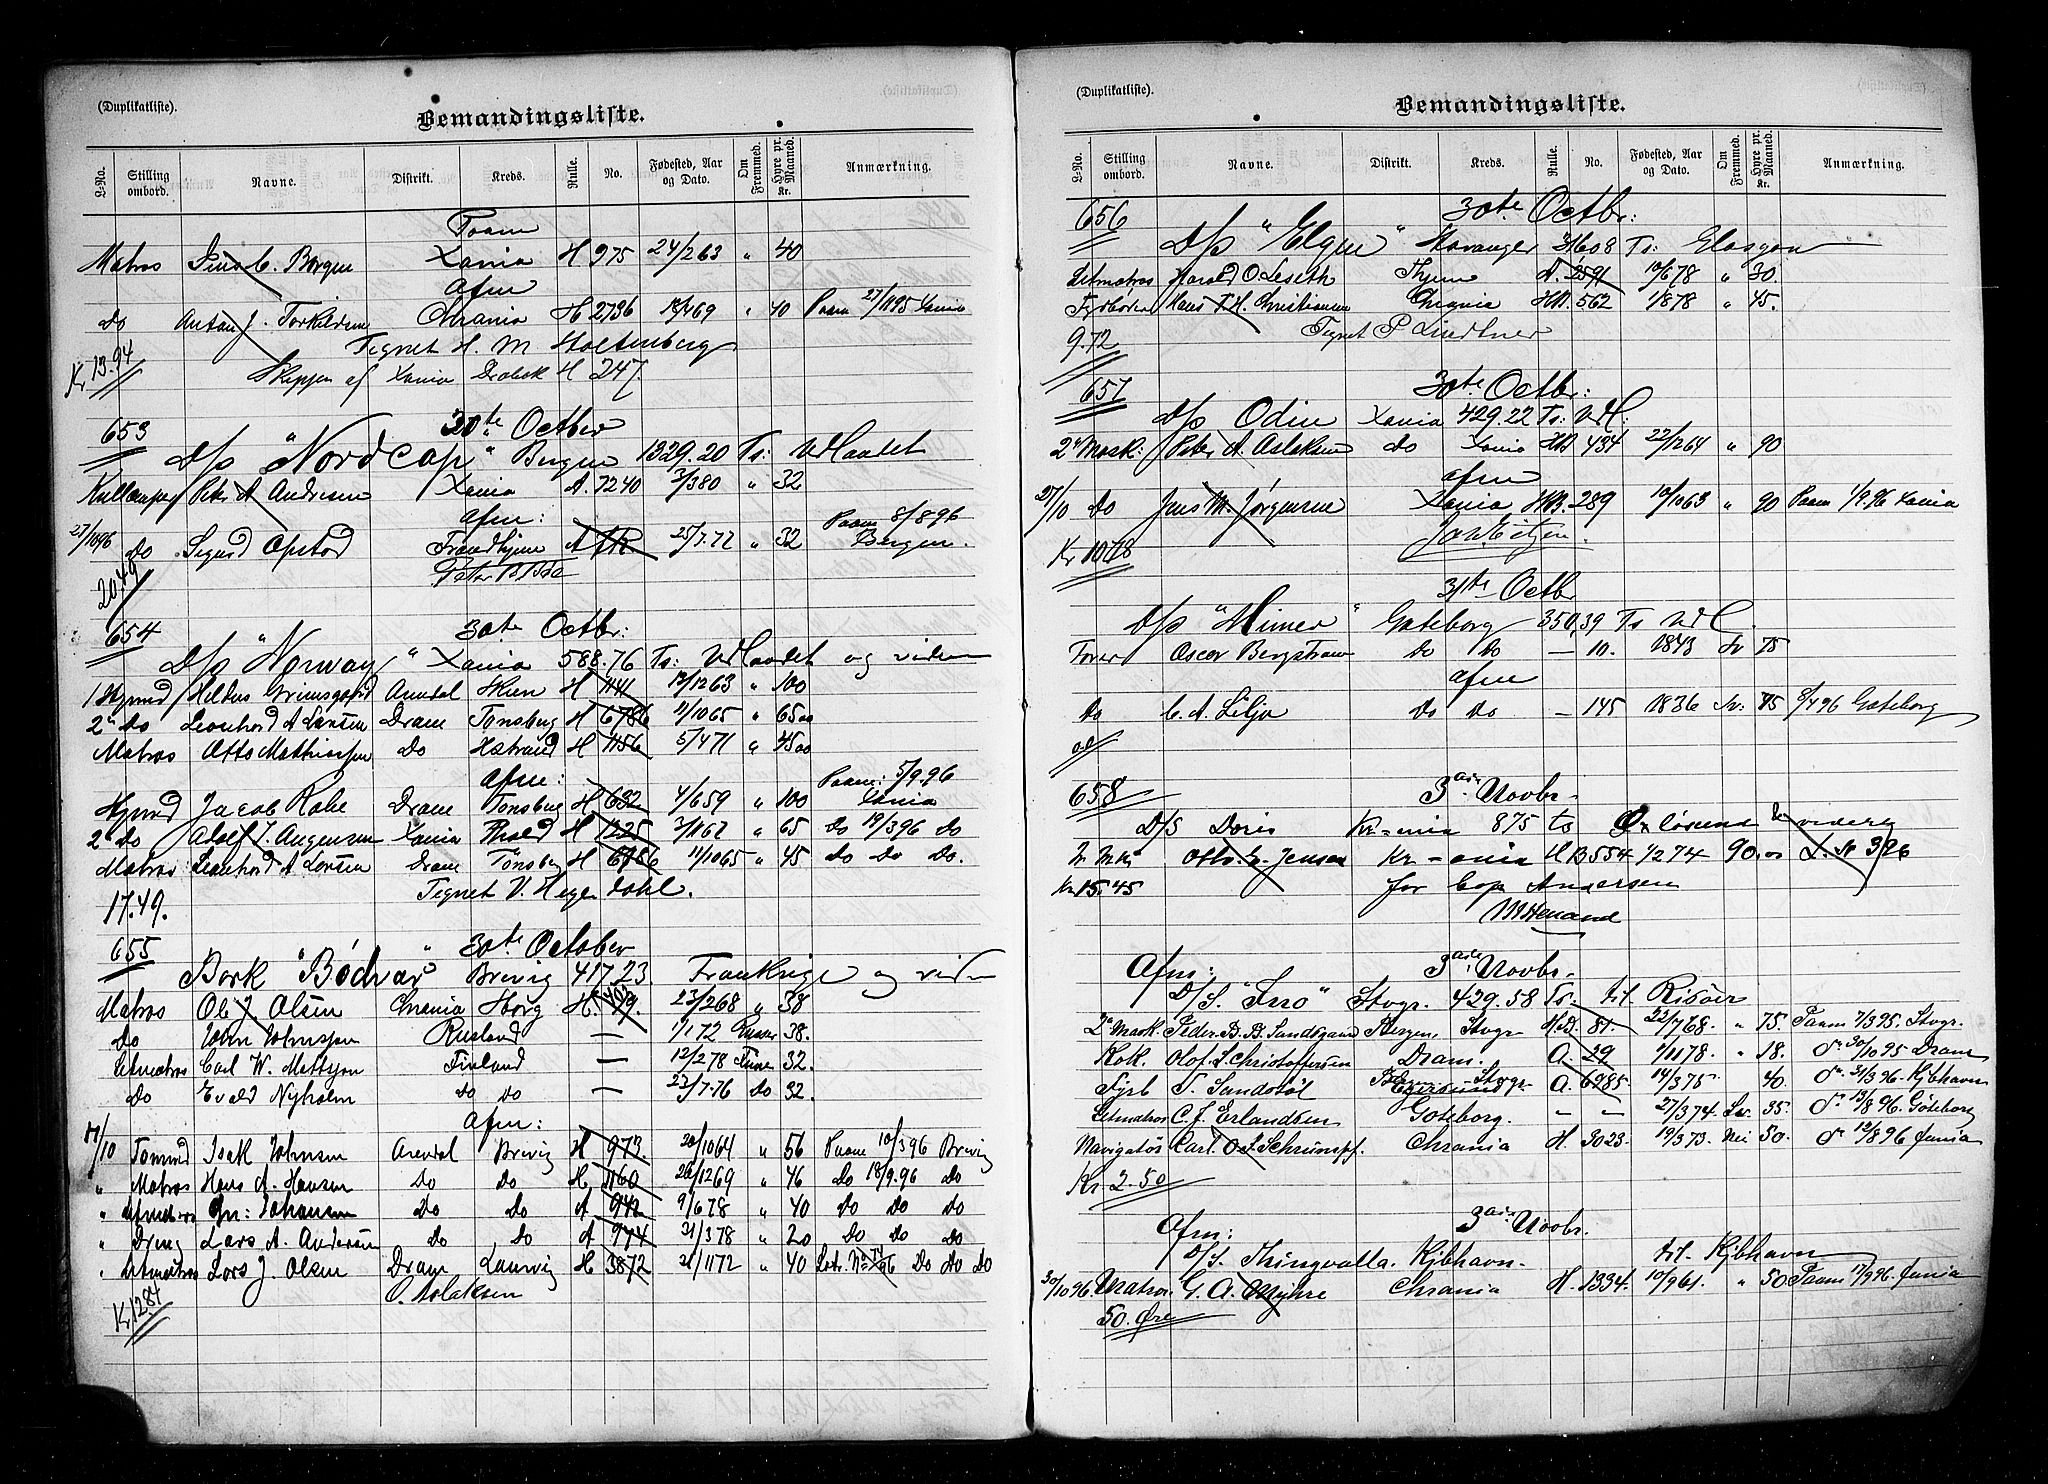 (Duplikatliste).
Bemandingsliste.
L.-No. Stilling ombord. Navne. Distrikt. Kreds. Rulle. No. Fødested, Aar og Dato. Om Fremmed. Hyre pr. Maaned. Kr. Anmærkning.
Paam
Matros Borgen Xania H 975 24/263 " 40
Afm
Do Anton J. Torkildsen Chrania H 2736 469 " 40 Paam 27/1195 Xania
Tegnet H. M. Holtenberg
Kr 13.94
Skippen af Xania H 247.
653 30te Octber
D/s "Nordcap" Bergen 1329.20 Ts: Udlandet
Kullemper Peter A Andresen Xania A. 7240 3/380 " 32
Afm:
27/1096 Do Sigurd Opstad Trondhjem A 25/7.72 " 32 Paam 8/896 Bergen.
20.49
654 30te Octbr:
D/s "Norway" Xania 588.76 Ts: Udlandet og videre
1 Styrmd Arendal Skien H 1141 1263 " 100
2n Do Leonhard A Larsen Dram Tønsberg H 6786 11/1065 " 65 00
Matros Otto Mathiassen Do H 1156 5/471 " 45 00
Afm: Paam: 5/9.96
Styrmd Jacob Dram Tønsberg H 632 4/659 " 100 Xania
2n Do Adolf J. Augensen Xania H 1225 3/1162 " 65 Do 19/396 Do
Matros Leonhard A Larsen Dram Tönsberg H 6786 11/1065 " 45 Do Do Do.
Tegnet V. Hegerdahl.
17.49.
655 30te October
Bark "Bödvar" Brevig 417,23 Frankrige og videre
Matros Ole J. Olsen Chrania H. 23/268 " 38
Do Rusland — 1/172 38.
Letmatros Carl W. Mattsson Finland — 12/278 32.
Do Evald Nyholm Do Do — 23/7.76 Do 32.
Afm:
10 Tømmd Isak Johnsen Arendal Brevig H 973. 20/1064 " 56 Paam 10/396 Brevig
" Matros Hans A. Hansen Do Do H. 1160 26/1269 " 46 Do 18/9.96 Do
" Letmatros Johansen Do Do A 942 9/678 " 40 Do Do Do
" Dreng Lars A. Andersen Do Do A 974 31/378 " 20 Do Do Do
" Letmatros Lars J. Olsen Dram Laurvig H 3872 21/1172 " 40 Do Do Do
O. Aslaksen
Kr 12.84
(Duplikatliste).
Bemandingsliste.
L.-No. Stilling ombord. Navne. Distrikt. Kreds. Rulle. No. Fødested, Aar og Dato. Om Fremmed. Hyre pr. Maaned. Kr. Anmærkning.
656 30te Octbr:
D/s "Elgen" Stavanger Ts: Glasgow
Letmatros Harald O. Leseth A. 2591 10/678 " 30.
Fyrbøder Hans Christiansen Chrania HB. 562 1/878 " 45.
Tegnet P. Lindtner
9.72
657 30te Octbr:
D/s Odin Xania 429.22 Ts: Udl:
2n Mask: Peter A. Aslaksen Do Xania HB 434 22/1264 " 90
Afm
27/10 Do Jens M. Jørgensen Xania HB. 289 10/1063 " 90 Paam 1/9.96 Xania
Kr 10.78
31te Octbr
D/s "Mimer" Gøteborg 350,39 Ts Udl.
Fører Oscar Bergstrøm Do Do — 10. 1843 Sv 75
Afm
Do C. A. Lilja Do Do — 145 1836 Sv: 75 8/496 Gøteborg
658 3die Novbr.
D/S Doris Kr-ania 875 ts videre
Otto G. Jensen Kr-ania HB 554 1/274 90.00 L. N 3/96
Kr 15.45 for Cap Andersen
Afm: 3die Novbr.
D/S. "Frro" Stvgr. 429.58 Ts. til Risøer
2n Mask. Peder B. B. Sandsgaard Bergen Stvgr. H.B. 81. 22/768. " 75. Paam 7/395. Stvgr.
Kok. Olof L. Christoffersen Dram. A. 29 9/1178. " 18. do 30/1095 Dram
Fyrb T. Sandstöl Stvgr. A. 6985 14/375 40. do 31/396. Kjbhavn
Letmatros C. J. Erlandsen Goteborg. — — 27/374. Sv. 35. do 13/8 96. Göteborg
Navigatør Carl O. A. Schrumpf. Chrania H. 3023. 19/373. Nei 50. do 12/896
Kr. 2.50
Afm: 3die Novbr.
D/S. Thingvalla. Kjbhavn. til Kjbhavn
30/1096. Matros G. A. Myhre Chrania H. 1334. 10/961. " 50 Paam 17/996.
50. Øre